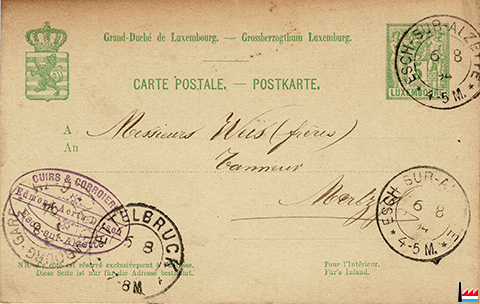 Grand-Duché de Luxembourg. — Grossherzogthum Luxemburg.
CARTE POSTALE. — POSTKARTE.
LUXEMBOURG
ESCH-SUR-ALZETTE
6 8
94
4-5 M.
A
Au
Messieurs Wiis (frères)
Tanneur
CUIRS & CORROIERIE
Edmond
Esch-sur-Alzette
ETTELBRUCK
6 8
8 M.
ESCH-SUR-AL
6 8
4-5 M.
NB. Ce côté est réservé exclusivement à l'adresse.
Diese Seite ist nur für die Adresse bestimmt.
Pour l'Intérieur.
Für's Inland.